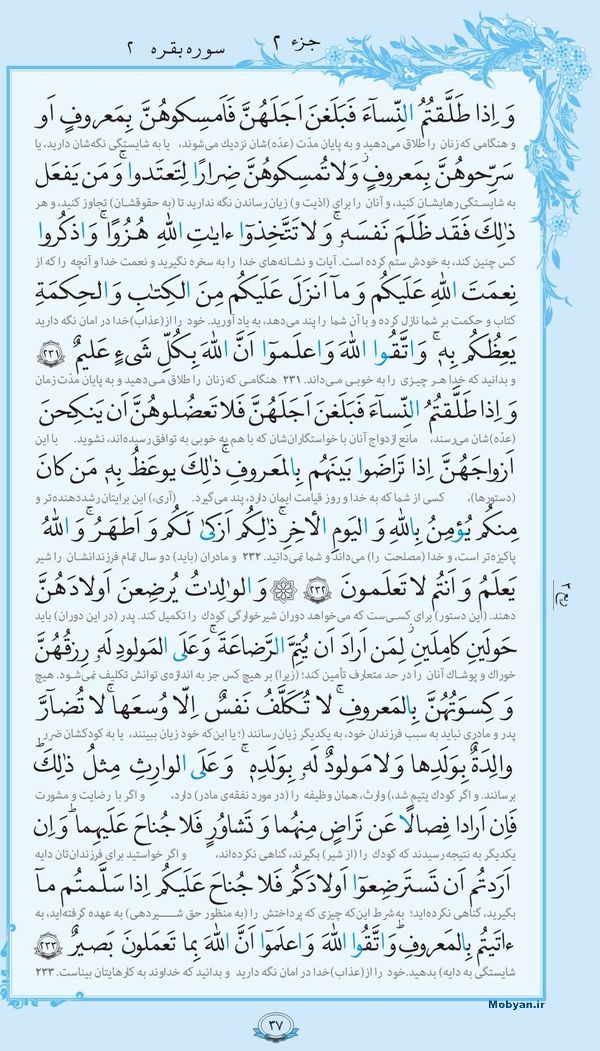 جزء ۲
سوره بقره ۲
وَ اِذا طَلَّقتُمُ النِّساۤءَ فَبَلَغنَ اَجَلَهُنَّ فَاَمسِكوهُنَّ بِمَعروفٍ اَو
و هنگامی که زنان را طلاق می‌دهید و به پایان مدّت (عدّه)شان نزدیک می‌شوند، یا به شایستگی نگه‌شان دارید، یا
سَرِّحوهُنَّ بِمَعروفٍ ۚ وَلا تُمسِكوهُنَّ ضِرارًا لِتَعتَدوا ۚ وَ مَن يَفعَل
به شایستگی رهایشان کنید، و آنان را برای (اذیت و) زیان رساندن نگه ندارید تا (به حقوقشان) تجاوز کنید، و هر
ذٰلِكَ فَقَد ظَلَمَ نَفسَهُ ۚ وَ لا تَتَّخِذوۤا ءايٰتِ اللهِ هُزُوًا ۚ وَ اذكُروا
کس چنین کند، به خودش ستم کرده است. آیات و نشانه‌های خدا را به سخره نگیرید و نعمت خدا و آنچه را که از
نِعمَتَ اللهِ عَلَيكُم وَ ماۤ اَنزَلَ عَلَيكُم مِنَ الكِتٰبِ وَ الحِكمَةِ
کتاب و حکمت بر شما نازل کرده و با آن شما را پند می‌دهد، به یاد آورید. خود را از(عذاب)خدا در امان نگه دارید
يَعِظُكُم بِهٖ ۚ وَ اتَّقُوا اللهَ وَ اعلَموۤا اَنَّ اللهَ بِكُلِّ شَىءٍ عَليمٌ ﴿۲۳۱﴾
و بدانید که خدا هر چیزی را به خوبی می‌داند. ۲۳۱ هنگامی که زنان را طلاق می‌دهید و به پایان مدّت زمان
وَ اِذا طَلَّقتُمُ النِّساۤءَ فَبَلَغنَ اَجَلَهُنَّ فَلا تَعضُلوهُنَّ اَن يَنكِحنَ
(عدّه)شان می‌رسند، مانع ازدواج آنان با خواستگاران‌شان که با هم به خوبی به توافق رسیده‌اند، نشوید. با این
اَزواجَهُنَّ اِذا تَراضَوا بَينَهُم بِالمَعروفِ ۗ ذٰلِكَ يوعَظُ بِهٖ مَن كانَ
(دستورها)، کسی از شما که به خدا و روز قیامت ایمان دارد، پند می‌گیرد. (آری،) این برایتان رشددهنده‌تر و
مِنكُم يُؤمِنُ بِاللهِ وَ اليَومِ الأخِرِ ۗ ذٰلِكُم اَزكىٰ لَكُم وَ اَطهَرُ ۗ وَ اللهُ
پاکیزه‌تر است، و خدا (مصلحت را) می‌داند و شما نمی‌دانید. ۲۳۲ و مادران (باید) دو سال تمام فرزندانشان را شیر
يَعلَمُ وَ اَنتُم لا تَعلَمونَ ﴿۲۳۲﴾ وَ الوالِداتُ يُرضِعنَ اَولادَهُنَّ
دهند. (این دستور) برای کسی‌ست که می‌خواهد دوران شیرخوارگی کودک را تکمیل کند. پدر (در این دوران) باید
حَولَينِ كامِلَينِ ۖ لِمَن اَرادَ اَن يُتِمَّ الرَّضاعَةَ ۚ وَعَلَى المَولودِ لَهُ رِزقُهُنَّ
خوراک و پوشاک آنان را در حد متعارف تأمین کند؛ (زیرا) بر هیچ کس جز به اندازه‌ی توانش تکلیف نمی‌شود. هیچ
وَ كِسوَتُهُنَّ بِالمَعروفِ ۚ لا تُكَلَّفُ نَفسٌ اِلّا وُسعَها ۚ لا تُضاۤرَّ
پدر و مادری نباید به سبب فرزندان خود، به یکدیگر زیان رسانند (؛ یا این‌که خود زیان ببینند، یا به کودکشان ضرر
والِدَةٌ بِوَلَدِها وَ لا مَولودٌ لَهُ بِوَلَدِهٖ ۚ وَعَلَى الوارِثِ مِثلُ ذٰلِكَ ۗ
برسانند. و اگر کودک یتیم شد،) وارث، همان وظیفه را (در مورد نفقه‌ی مادر) دارد، و اگر با رضایت و مشورت
فَاِن اَرادا فِصالًا عَن تَراضٍ مِنهُما وَ تَشاوُرٍ فَلا جُناحَ عَلَيهِما ۗ وَ اِن
یکدیگر به نتیجه رسیدند که کودک را (از شیر) بگیرند، گناهی نکرده‌اند، و اگر خواستید برای فرزندان‌تان دایه
اَرَدتُم اَن تَستَرضِعوۤا اَولادَكُم فَلا جُناحَ عَلَيكُم اِذا سَلَّمتُم ماۤ
بگیرید، گناهی نکرده‌اید؛ به‌شرط این‌که چیزی که پرداختش را (به منظور حق شیردهی) به عهده گرفته‌اید، به
ءاتَيتُم بِالمَعروفِ ۗ وَ اتَّقُوا اللهَ وَ اعلَموۤا اَنَّ اللهَ بِما تَعمَلونَ بَصيرٌ ﴿۲۳۳﴾
شایستگی به دایه) بدهید. خود را از(عذاب)خدا در امان نگه دارید و بدانید که خداوند به کارهایتان بیناست. ۲۳۳
۳۷
Mobyan.ir